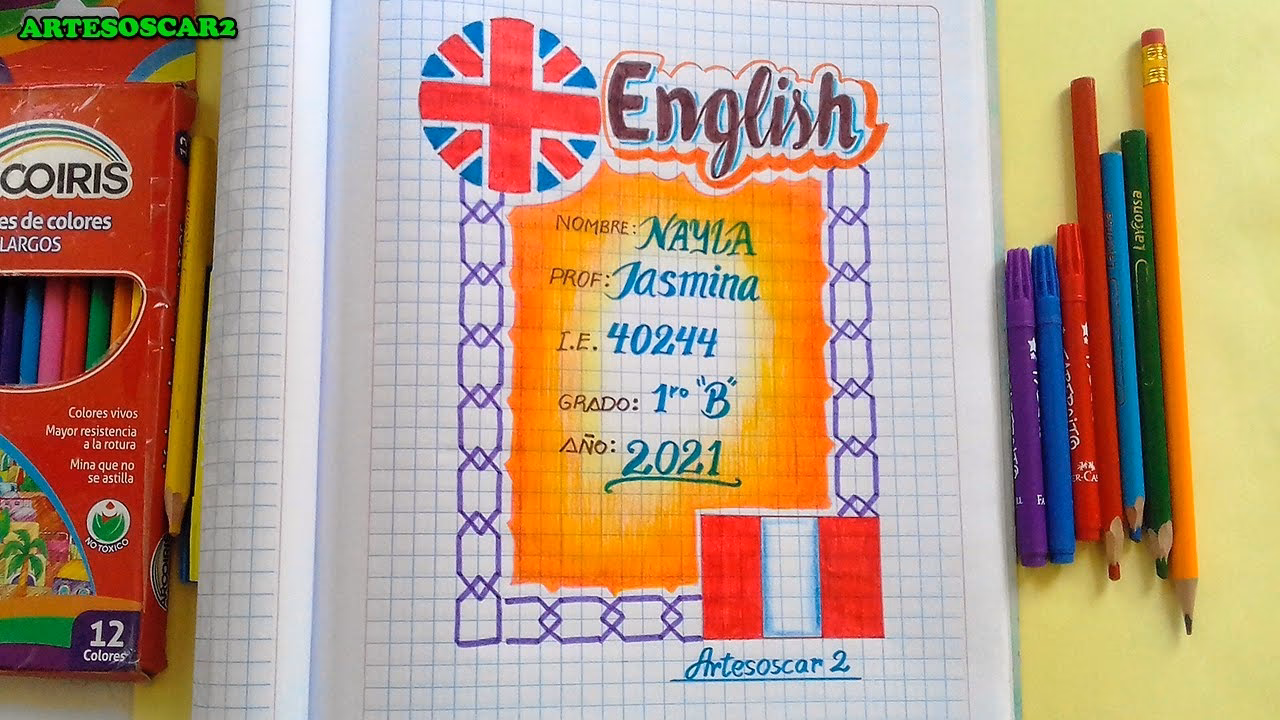 ARTESOSCAR2
COIRIS
es de colores
LARGOS
Colores vivos
Mayor resistencia
a la rotura
Mina que no
se astilla
NO TÓXICO
12
Colores
English
NOMBRE: NAYLA
PROF: Jasmina
I.E. 40244
GRADO: 1ro "B"
AÑO: 2021
Artesoscar 2
Layconsa